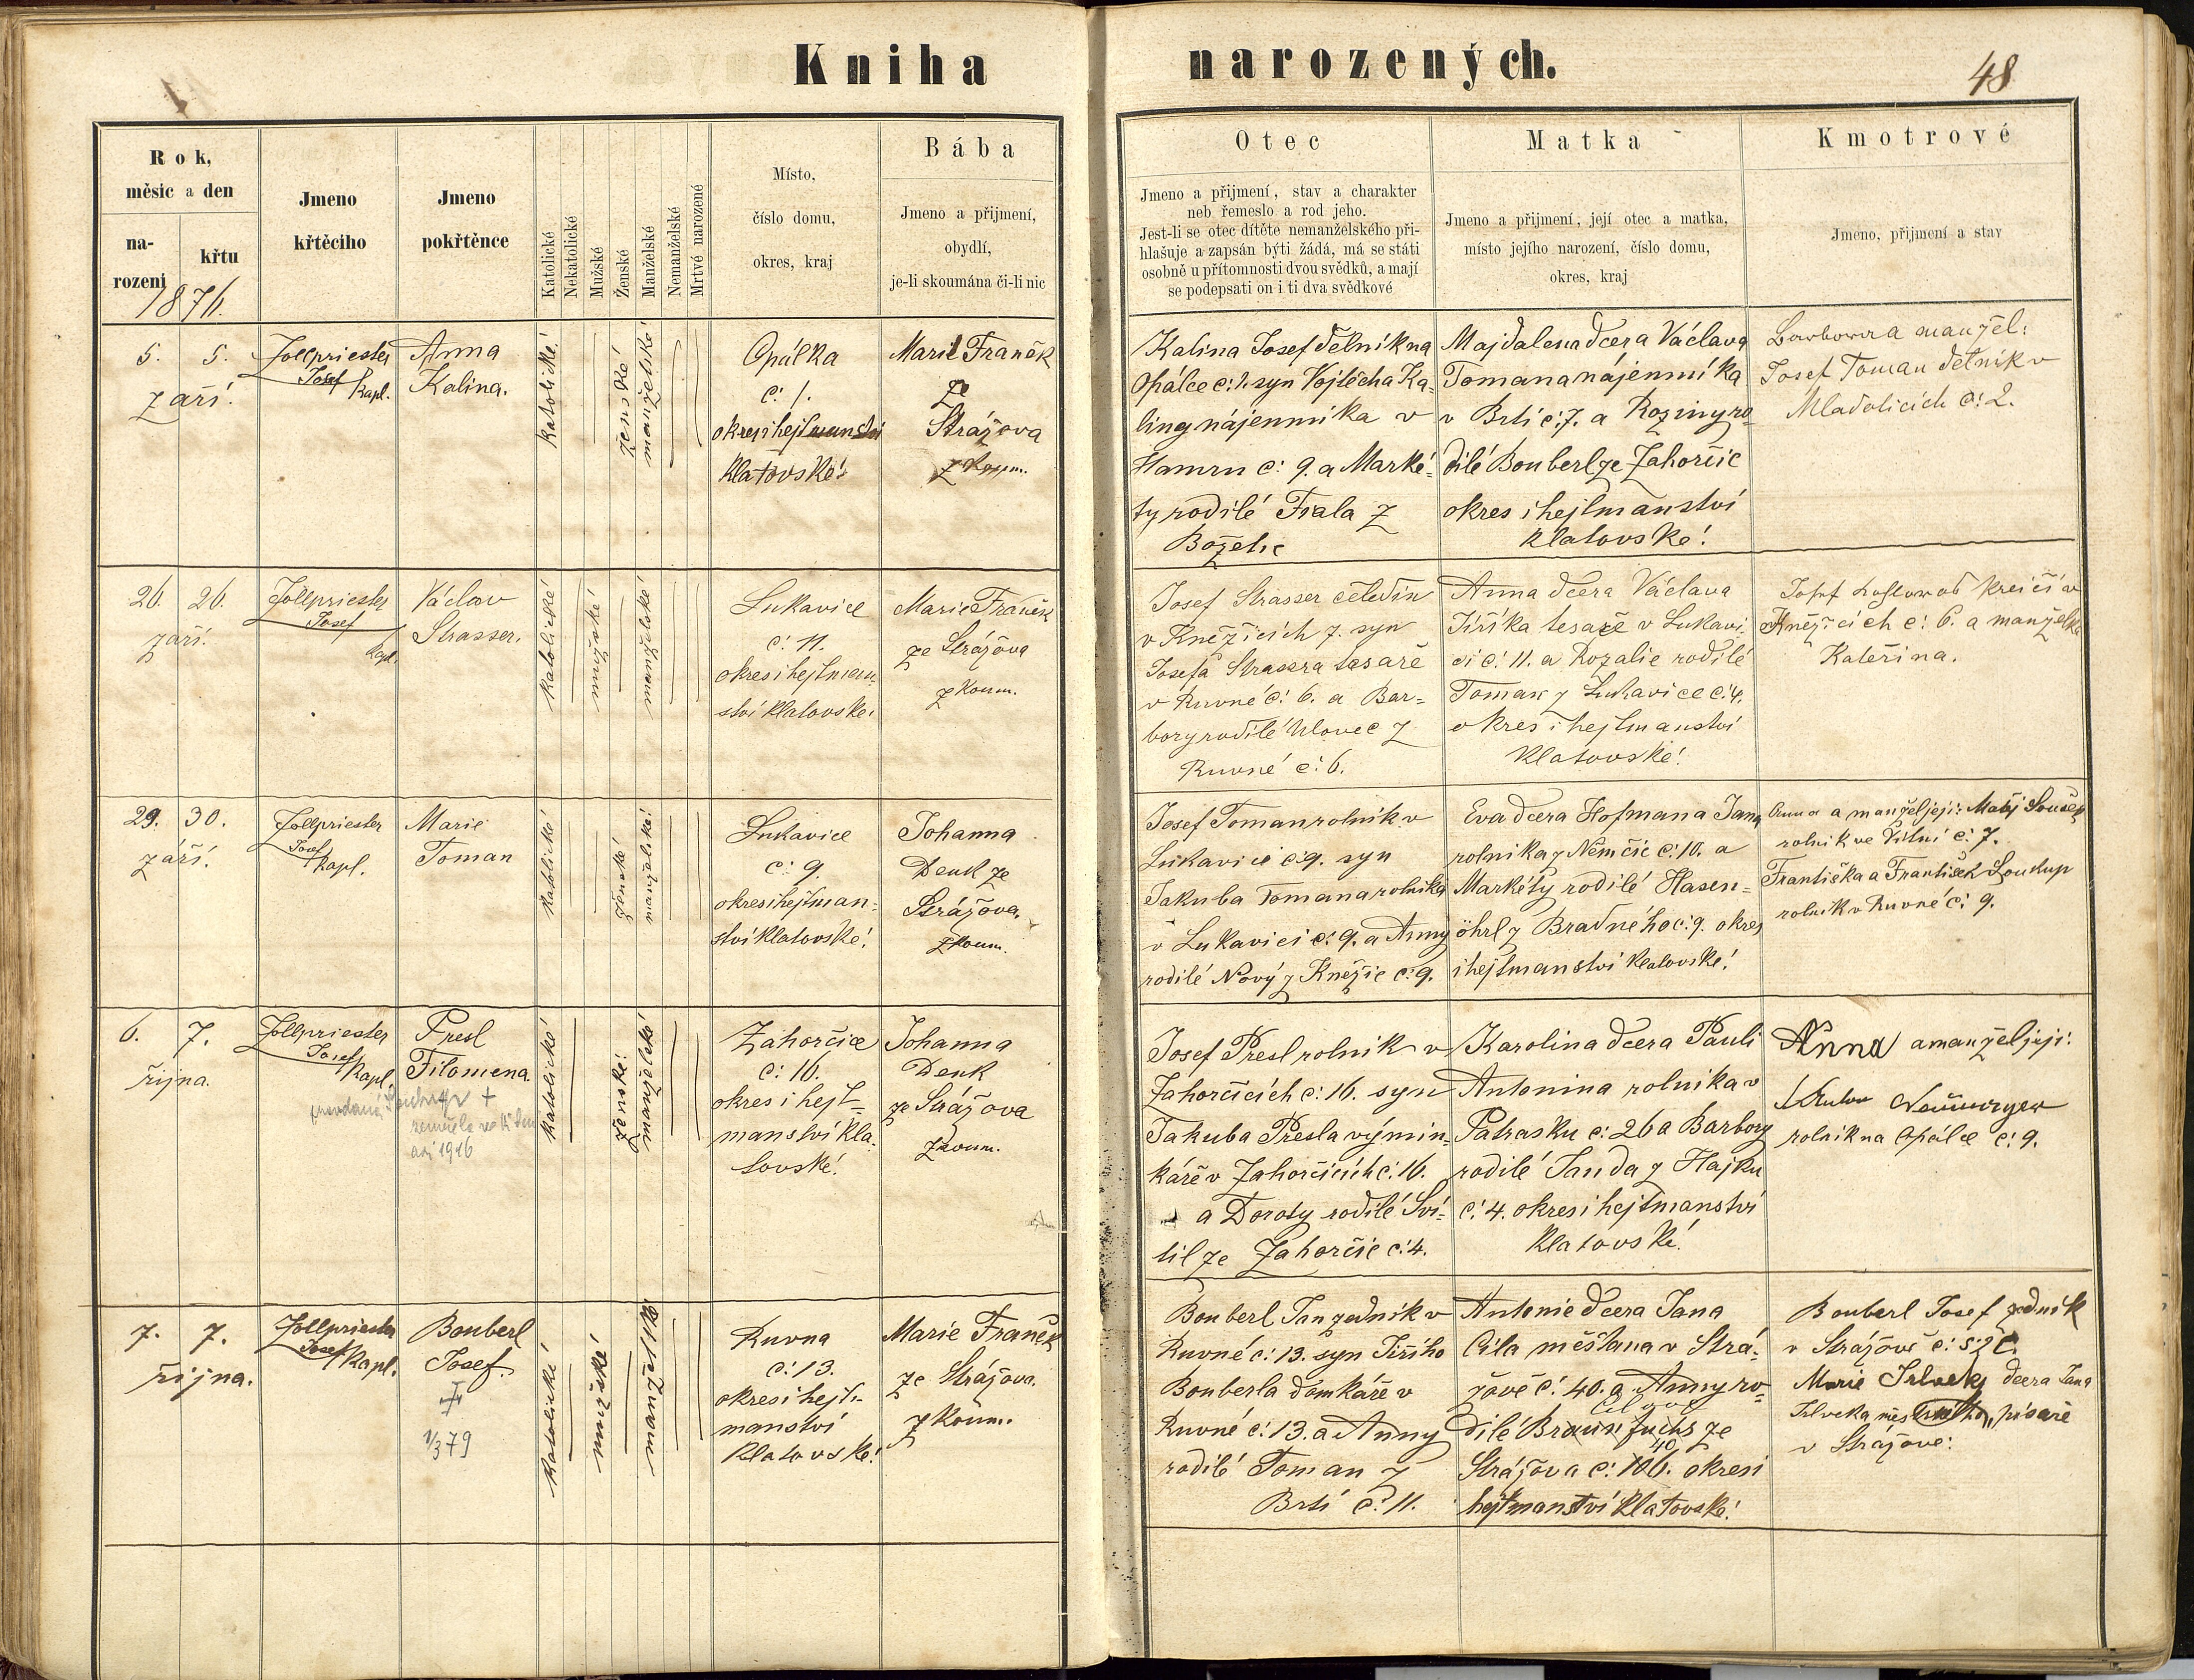 Kniha narozených.
48
Rok,
měsíc a den
na-
rození
křtu
1876.
Jmeno
křtěcího
Jmeno
pokřtěnce
Katolické
Nekatolické
Mužské
Ženské
Manželské
Nemanželské
Mrtvé narozené
Místo,
číslo domu,
okres, kraj
Bába
Jmeno a přijmení,
obydlí,
je-li skoumána či-li nic
Otec
Jmeno a přijmení, stav a charakter
neb řemeslo a rod jeho.
Jest-li se otec dítěte nemanželského při-
hlašuje a zapsán býti žádá, má se státi
osobně u přítomnosti dvou svědků, a mají
se podepsati on i ti dva svědkové
Matka
Jmeno a přijmení, její otec a matka,
místo jejího narození, číslo domu,
okres, kraj
Kmotrové
Jmeno, přijmení a stav
5. 5.
září.
Zollpriester
Josef
Kapl.
Anna
Kalina.
katolické
ženské
manželské
Opálka
č: 1.
okres i hejtmanství
Klatovské.
Marie Franěk
ze
Strážova
zkoum.
Kalina Josef dělník na
Opálce č: 1. syn Vojtěcha Ka-
liny nájemníka v
Hamru č: 9. a Marké-
ty rodilé Fiala z
Božetic
Majdalena dcera Václava
Tomana nájemníka
v Brtí č: 7. a Roziny ro-
dilé Bouberl ze Zahorčic
okres i hejtmanství
Klatovské.
Barbora manžel:
Josef Toman dělník v
Mladoticích č: 2.
26. 26.
září.
Zollpriester
Josef
Kapl.
Václav
Strasser.
katolické
mužské
manželské
Lukavice
č: 11.
okres i hejtman-
ství Klatovské.
Marie Franěk
ze Strážova
zkoum.
Josef Strasser čeledín
v Kněžicích 7. syn
Josefa Strassra tesaře
v Ruvné č: 6. a Bar-
bory rodilé Ulovec z
Ruvné č: 6.
Anna dcera Václava
Jiříka tesaře v Lukavi-
ci č: 11. a Rozalie rodilé
Toman z Lukavice č: 4.
okres i hejtmanství
Klatovské.
Josef krejčí v
Kněžicích č: 6. a manželka
Kateřina.
29. 30.
září.
Zollpriester
Josef
Kapl.
Marie
Toman
katolické
ženské
manželské
Lukavice
č: 9.
okres i hejtman-
ství Klatovské.
Johanna
Denk ze
Strážova.
zkoum.
Josef Toman rolník v
Lukavici č: 9. syn
Jakuba Tomana rolníka
v Lukavici č: 9. a Anny
rodilé Nový z Kněžic č: 9.
Eva dcera Hofmana Jana
rolníka z Němčic č: 10. a
Markéty rodilé Hasen-
öhrl z Bradného č: 9. okres
i hejtmanství Klatovské.
Anna a manžel její: Matěj Souček
rolník ve Vítni č: 7.
Františka a František Soukup
rolník v Ruvné č: 9.
6. 7.
října.
Zollpriester
Josef
Kapl.
Presl
Filomena.
provdaná +
zemřela
září 1916
katolické
ženské
manželské
Zahorčice
č: 16.
okres i hejt-
manství Kla-
tovské.
Johanna
Denk
ze Strážova
zkoum.
Josef Presl rolník v
Zahorčicích č: 16. syn
Jakuba Presla výmin-
káře v Zahorčicích č: 16.
a Doroty rodilé Sví-
til ze Zahorčic č: 4.
Karolina dcera Pauli
Antonina rolníka v
Patrasku č: 26 a Barbory
rodilé Janda z Hajku
č: 4. okres i hejtmanství
Klatovské.
Anna a manžel její:
Anton Neumayer
rolník na Opálce č: 9.
7. 7.
října.
Zollpriester
Josef
Kapl.
Bouberl
Josef.
1/3 79
katolické
mužské
manželské
Ruvna
č: 13.
okres i hejt-
manství
Klatovské.
Marie Franěk
ze Strážova.
zkoum.
Bouberl Jan zedník v
Ruvné č: 13. syn Jiřího
Bouberla domkáře v
Ruvné č: 13. a Anny
rodilé Toman z
Brtí č: 11.
Antonie dcera Jana
Cila měšťana v Strá-
žově č: 40. a Anny ro-
dilé Braun Fuchs ze
40
Strážova č: 106. okres i
hejtmanství Klatovské.
Bouberl Josef zedník
v Strážově č:
Marie dcera Jana
písaře
v Strážově.